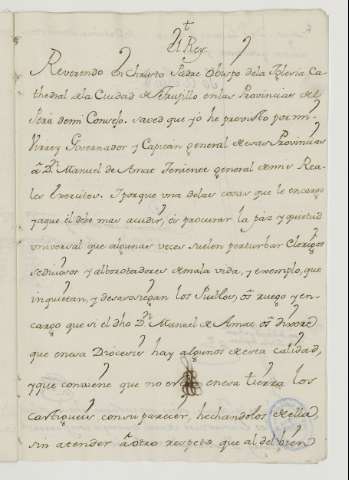 El Rey.
Reverendo en Christo Padre Obispo dela Iglesia Ca-
thedral dela Ciudad de Truxillo enlas Provincias del
Perù demi Consejo. saved que yò he proveìdo por mi-
Virrey Governador y Capitàn general de esas Provincias
à Dn. Manuel de Amat Teniente general demis Rea-
les Exercitos. Y porque una delas cosas que le encargo
yaque èl debe mas acudir, és procurar la paz y quietud
universal que algunas veces suelen perturbar Clerigos
sediciosos y alborotadores demala vida, y exemplo, que
inquietan, y desasosiegan los Pueblos, os ruego y en-
cargo que si el dho Dn. Manuel de Amat os dixere
que enesa Diocesis hay algunos de esta calidad,
yque conviene que no estèn enesa tierra los
castigueis, consu parecer, hechandolos de ella
sin atender à otro respeto, que al del bien